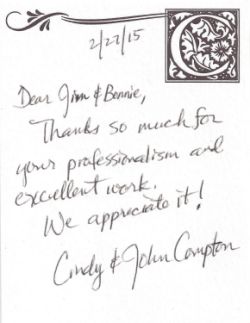 2/27/15
C
Dear Jim & Bennie,
Thanks so much for
your professionalism and
excellent work.
We appreciate it!
Cindy & John Compton